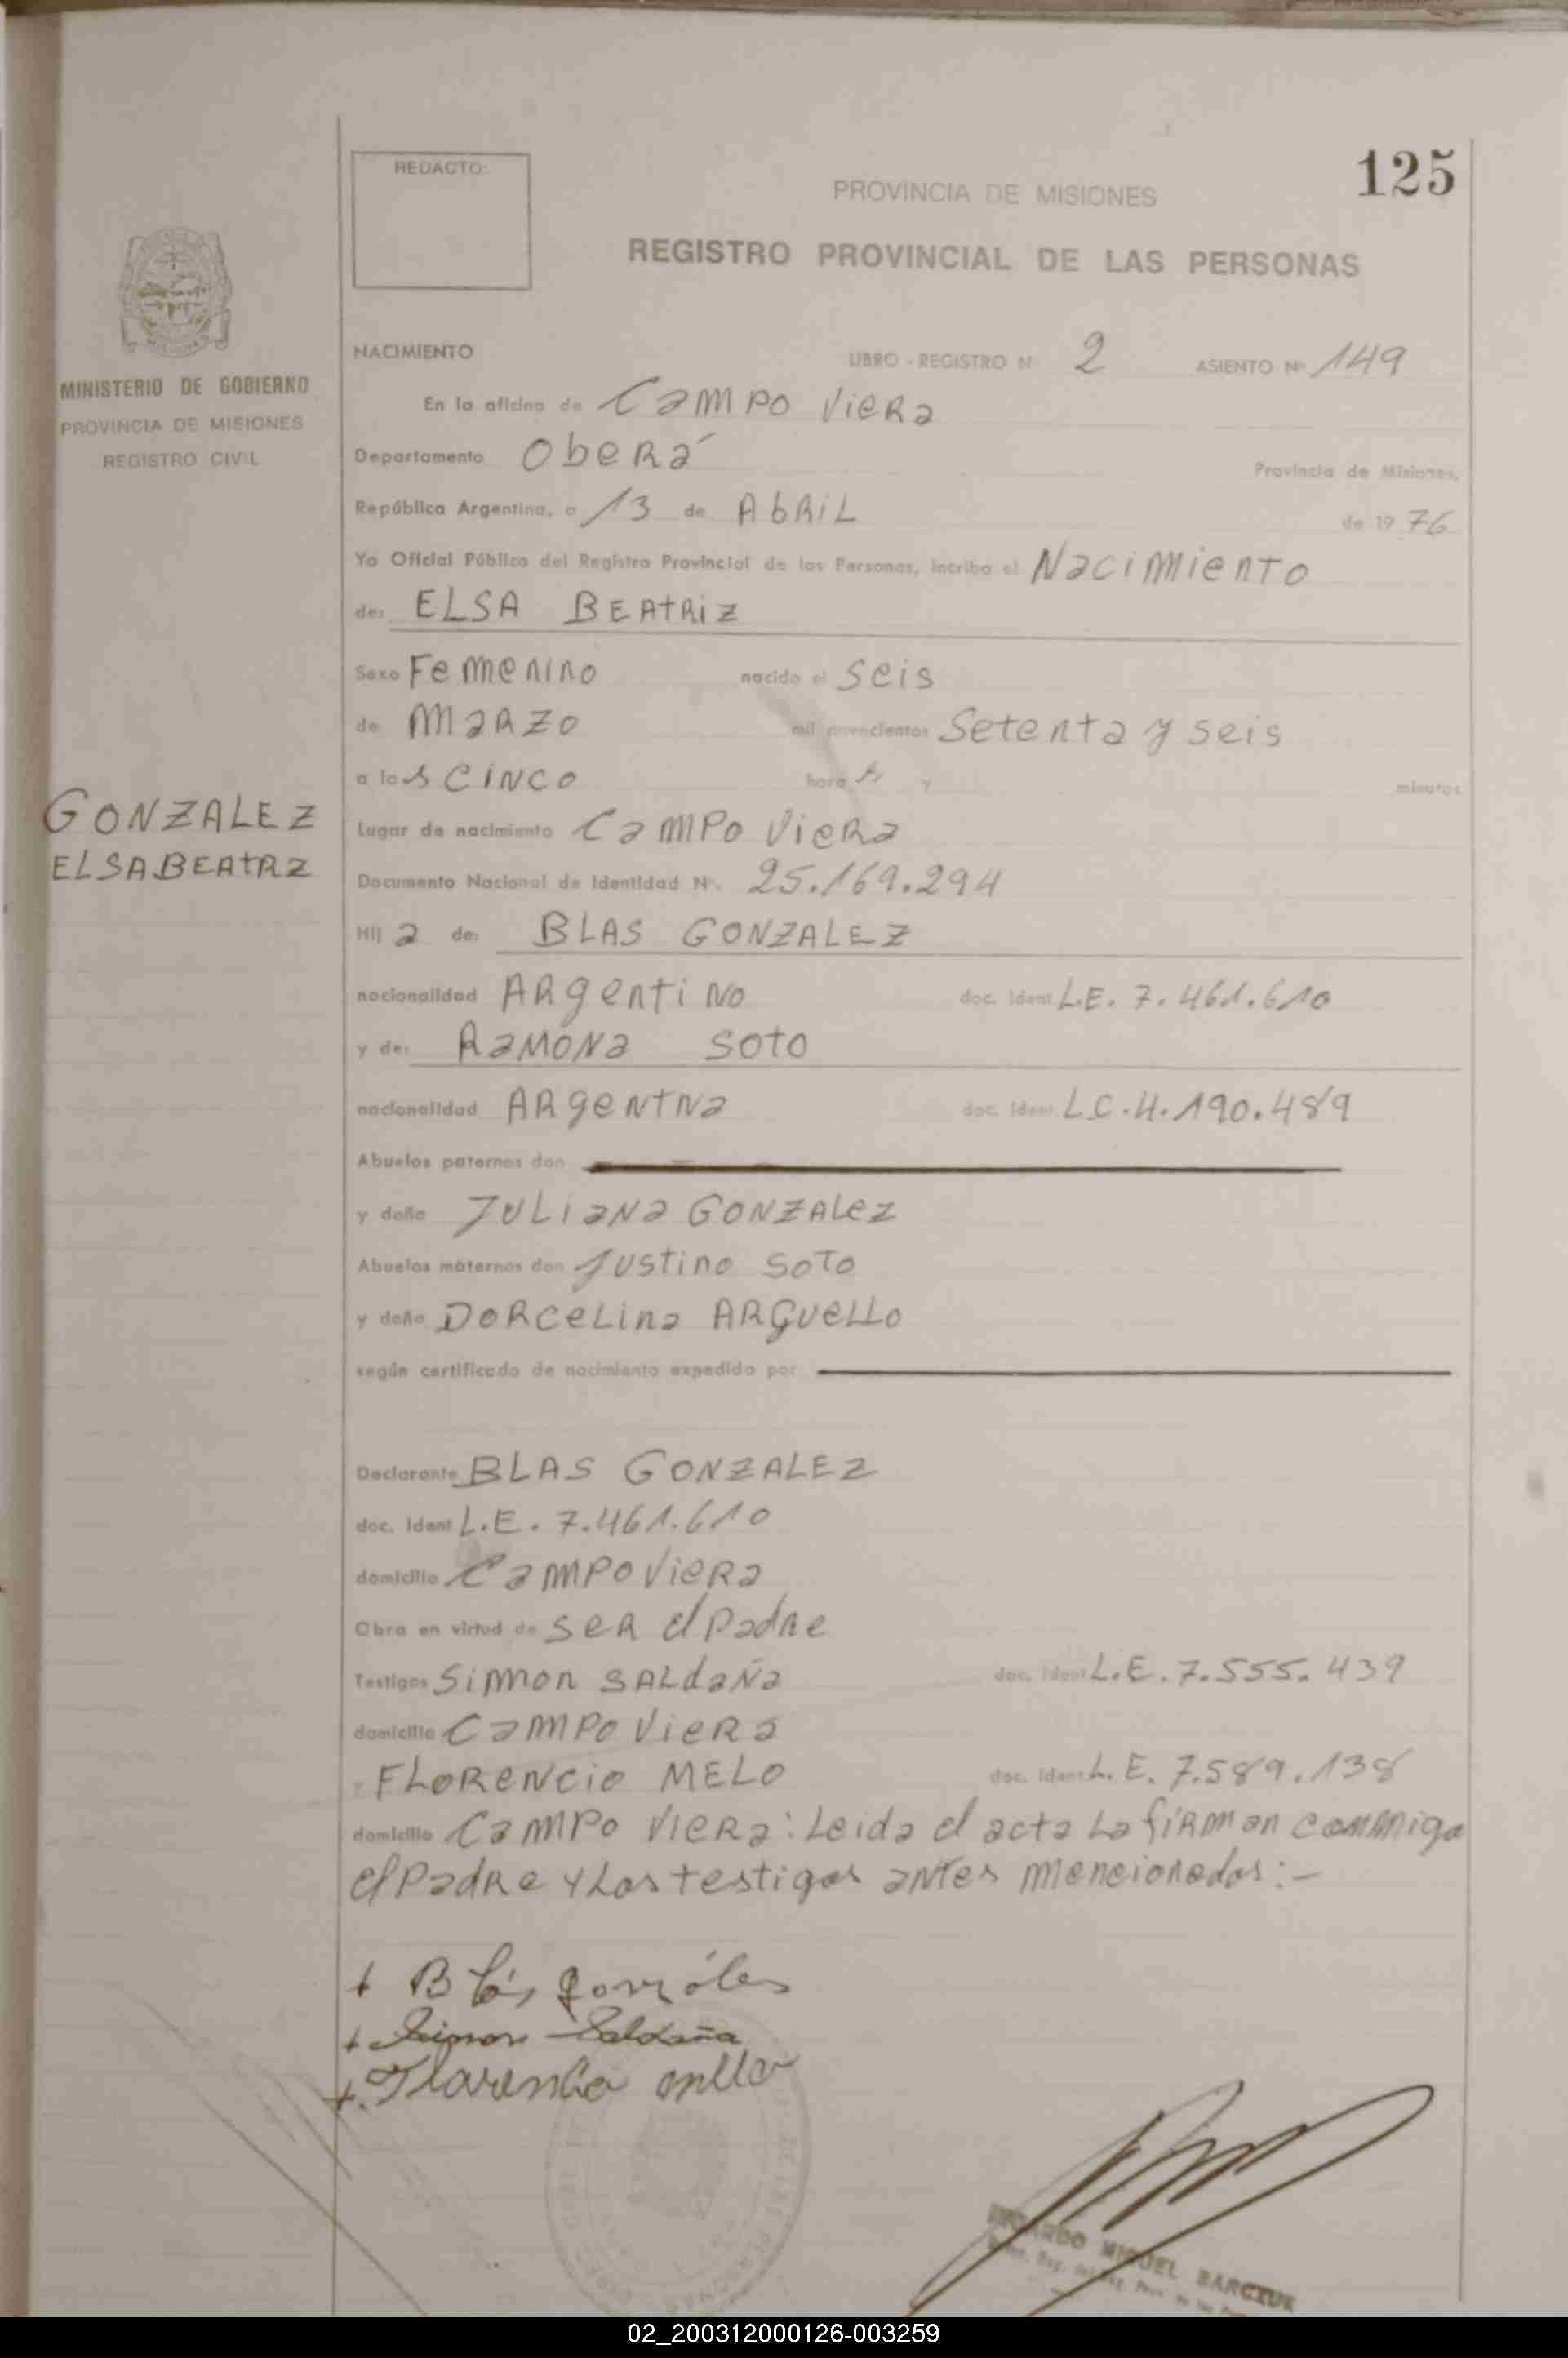 125
REDACTO:
PROVINCIA DE MISIONES
REGISTRO PROVINCIAL DE LAS PERSONAS
MINISTERIO DE GOBIERNO
PROVINCIA DE MISIONES
REGISTRO CIVIL
NACIMIENTO LIBRO - REGISTRO N 2 ASIENTO Nº 149
En la oficina de CAMPO VIERA
Departamento OBERÁ Provincia de Misiones,
República Argentina, a 13 de ABRIL de 1976
Yo Oficial Público del Registro Provincial de las Personas, incribo el Nacimiento
de: ELSA BEATRIZ
Sexo Femenino nacido el seis
de MARZO mil novecientos Setenta y seis
a las CINCO horas y minutos
GONZALEZ
ELSA BEATRZ
Lugar de nacimiento CAMPO VIERA
Documento Nacional de Identidad Nº. 25.169.294
Hija de: BLAS GONZALEZ
nacionalidad ARgentiNo doc. Ident. L.E. 7.461.610
y de: RAMONA SOTO
nacionalidad ARgeNtNa doc. Ident. L.C. 4.190.489
Abuelos paternos don
y doña JULIANA GONZALEZ
Abuelos maternos don Justino SOTO
y doña DORCELINA ARGUELLO
según certificado de nacimiento expedido por
Declarante BLAS GONZALEZ
doc. Ident L.E. 7.461.610
domicilio CAMPO VIERA
Obra en virtud de SER el Padre
Testigos SIMON SALDAÑA doc. Ident L.E. 7.555.439
domicilio CAMPO VIERA
y FLORENCIO MELO doc. Ident. L.E. 7.589.138
domicilio CAMPO VIERA: Leida el acta La firman conmigo
el Padre y Los testigos antes mencionados:-
+ Blás gonzáles
+ Simon Saldaña
+
RICARDO MIGUEL BARCZUK
02_200312000126-003259